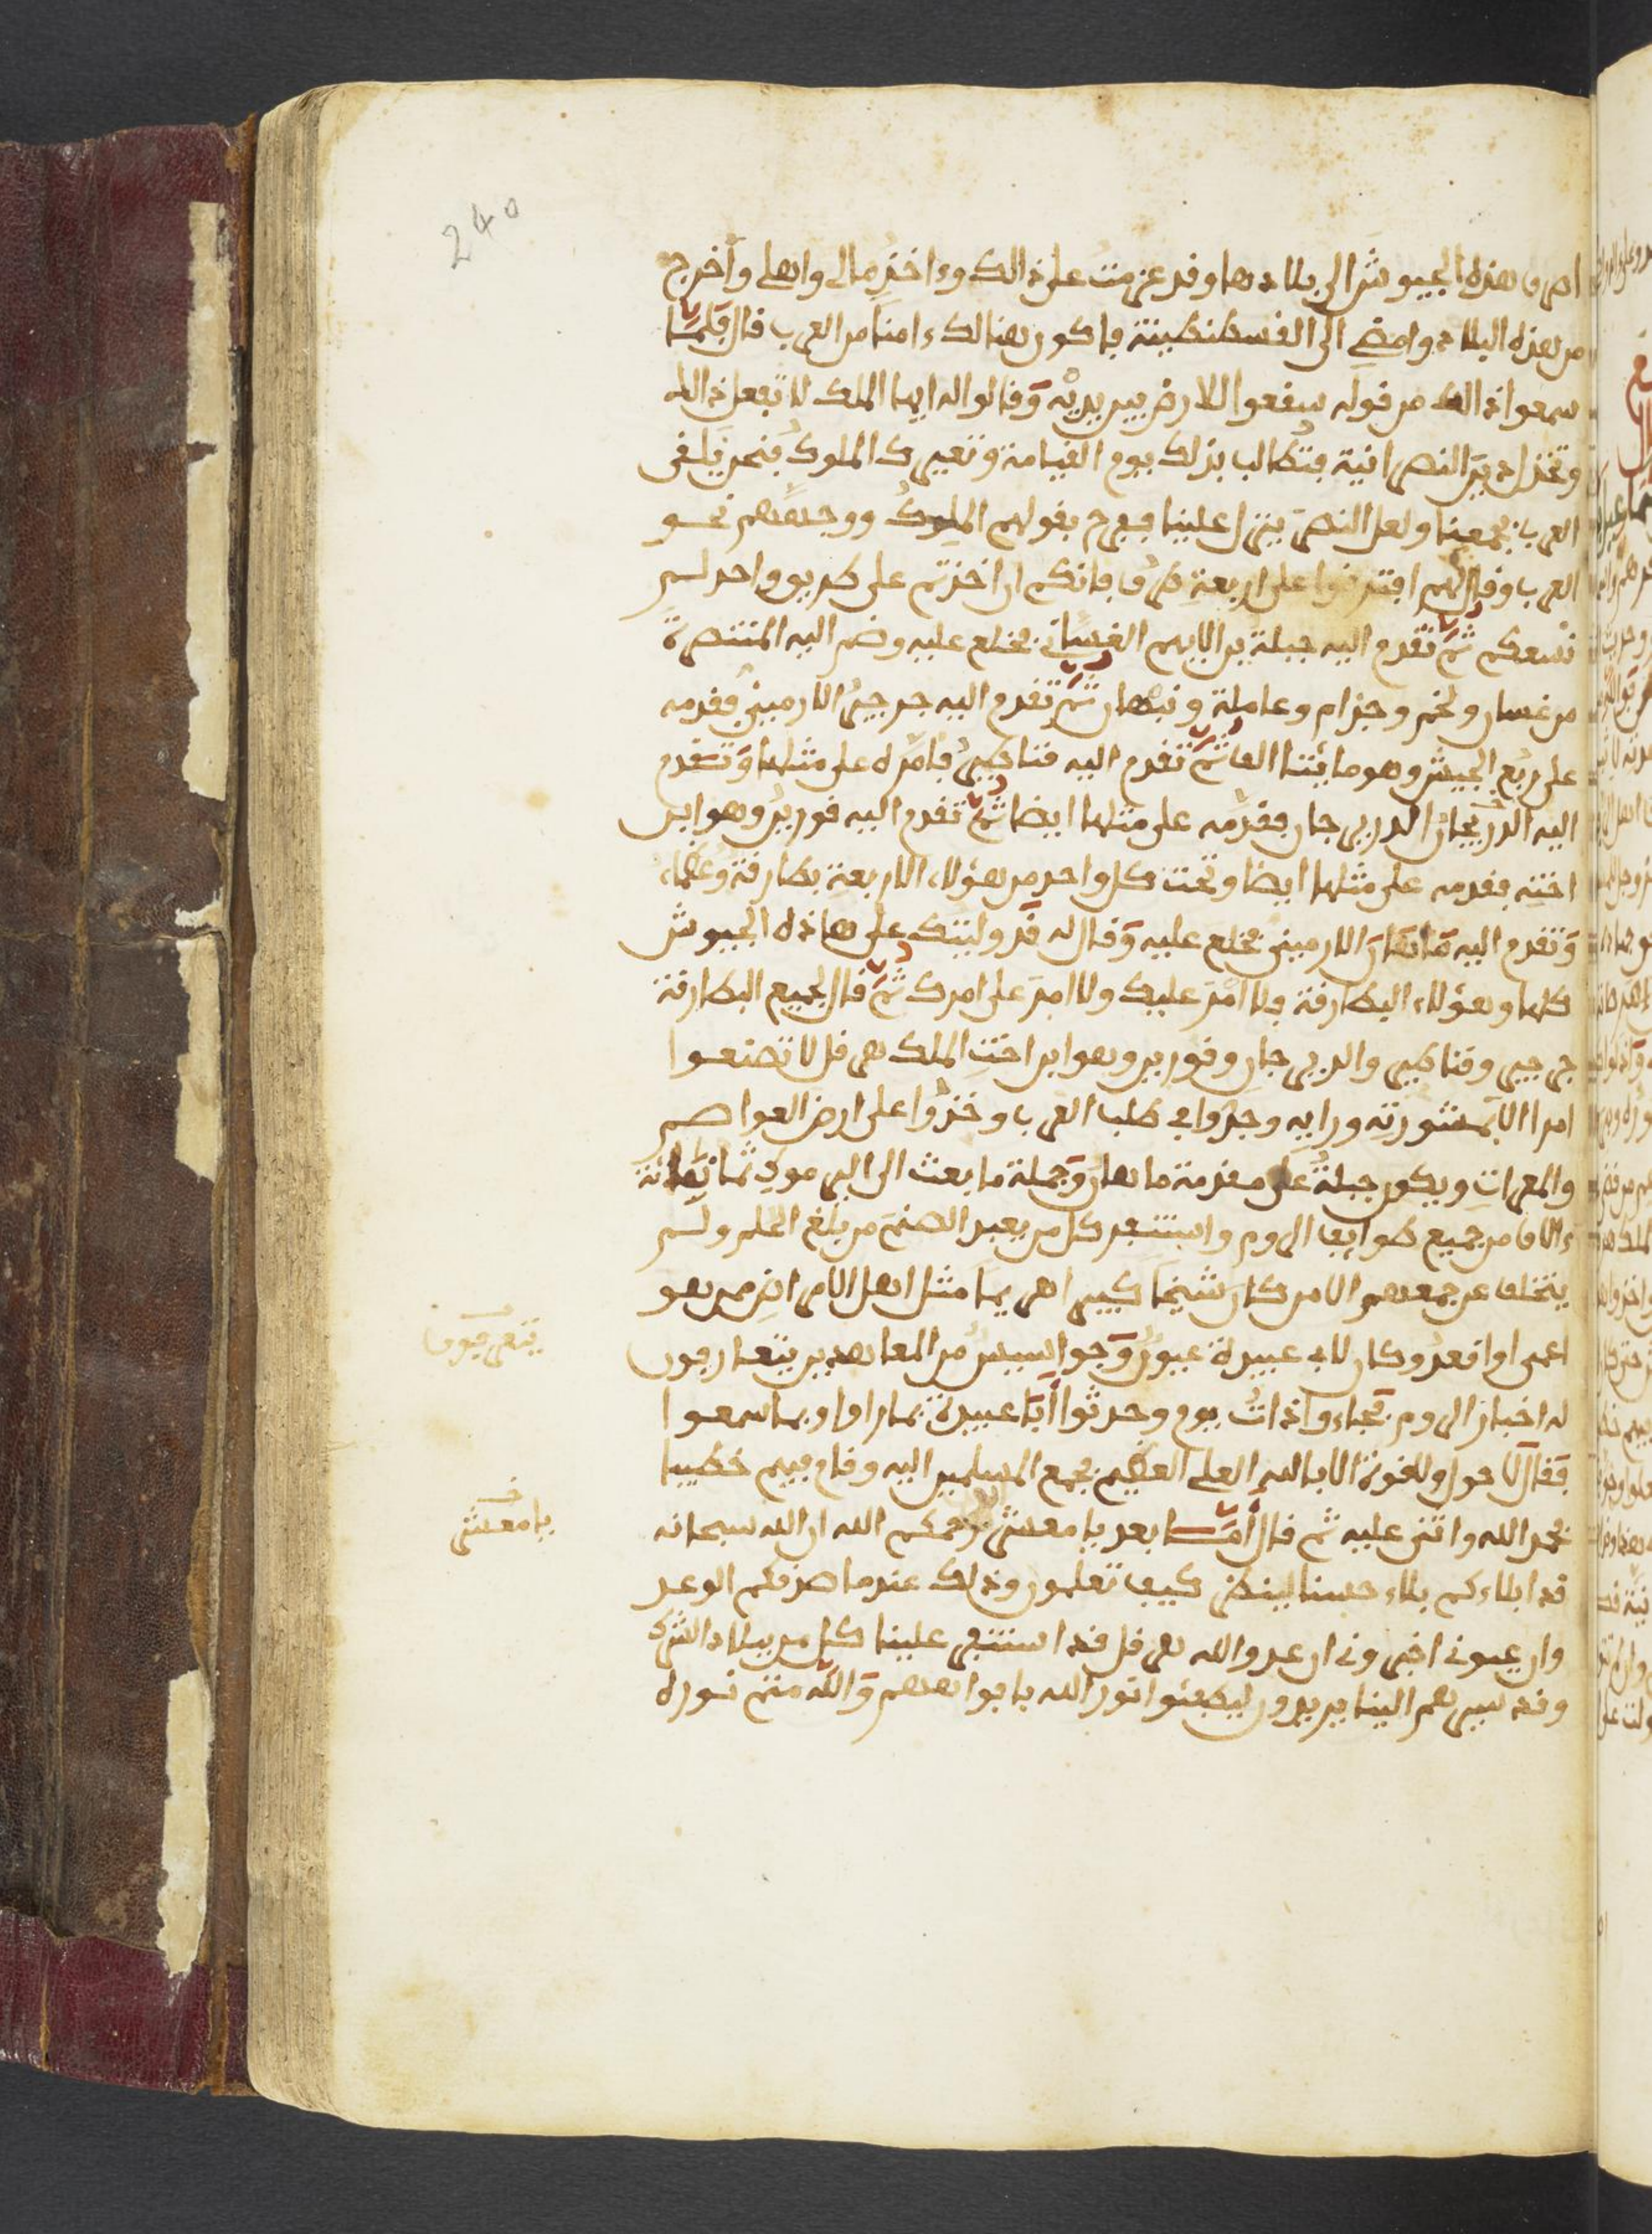 240
اصرف هذه الجيوش الى بلادها وقد عزمت على ذالك وءاخذ مالى واهلى واخرج
من هذه البلاد وامضى الى القسطنطينة فاكون هنالك ءامنا من العرب قال فلمـا
سمعوا ذالك من قوله سقعوا للارض بين يديه وقالوا له ايها الملك لا تفعل ذالك
وتخذل دين النصرانية فتطالب بذلك يوم القيامة وتعيرك الملوك فنحن نلقى
العرب بجمعنا ولعل النصر ينزل علينا ففرح بقولهم الملوك ووجههم نحـو
العرب وقال لهم افترقوا على اربعة طرق فانكم ان اخذتم على طريق واحد لـم
تسعكم ثم تقدم اليه جبلة بن الايهم الغساني فخلع عليه وضم اليه المتنصرة
من غسان ولخم وجذام وعاملة ونبهان ثم تقدم اليه جرجير الارميني فقدمه
على ربع الجيش وهو مائتا الف ثم تقدم اليه قناطير فامره على مثلها وتقدم
اليه الدريجان الدربي جان فقدمه على مثلها ايضا ثم تقدم اليه قورين وهو ابن
اخته فقدمه على مثلها ايضا وتحت كل واحد من هؤلاء الاربعة بطارقة وعظماء
وتقدم اليه ماهان الارميني فخلع عليه وقال له قد وليتك على هاذه الجيوش
كلها وهؤلاء البطارقة ولا امير عليك ولا امر على امرك ثم قال لجميع البطارقة
جرجير وقناطير والدربي جان وقورين وهو ابن اخت الملك هرقل لا تصنعـوا
امرا الا بمشورته ورايه وجدوا في طلب العرب وخذوا على ارض العواصـم
والمعرات ويكون جبلة على مقدمة ماهان وجملة ما بعث الى اليرموك ثمانمائة
ءالاف من جميع طوايف الروم واستنجد كل من يعبد الصنم من بلغ الحلم ولـم
يتخلف عن جمعهم الا من كان شيخا كبيرا هرما مثل اهل الامراض ممن هو
اعمى او اقعد وكان لابي عبيدة عيون وجواسيس من المعاهدين يتعارفون
له اخبار الروم فجاءوا ذات يوم وحدثوا ابا عبيدة بما راوا وبما سمعـوا
فقال لا حول ولا قوة الا بالله العلى العظيم فجمع المسلمين اليه وقام فيهم خطيبا
فحمد الله واثنى عليه ثم قال امـا بعد يا معشر رحمكم الله ان الله سبحانه
قد ابلاءكم بلاء حسنا لينظر كيف تعلمون وذلك عندما صدقكم الوعـد
وان عيوني اخبروني ان عدو الله هرقل قد استنفر علينا كل من ببلاد الشرك
وقد سيرهم الينا يريدون ليطفئوا نور الله بافواههم والله متم نـوره
يتعرفون
يا معشر